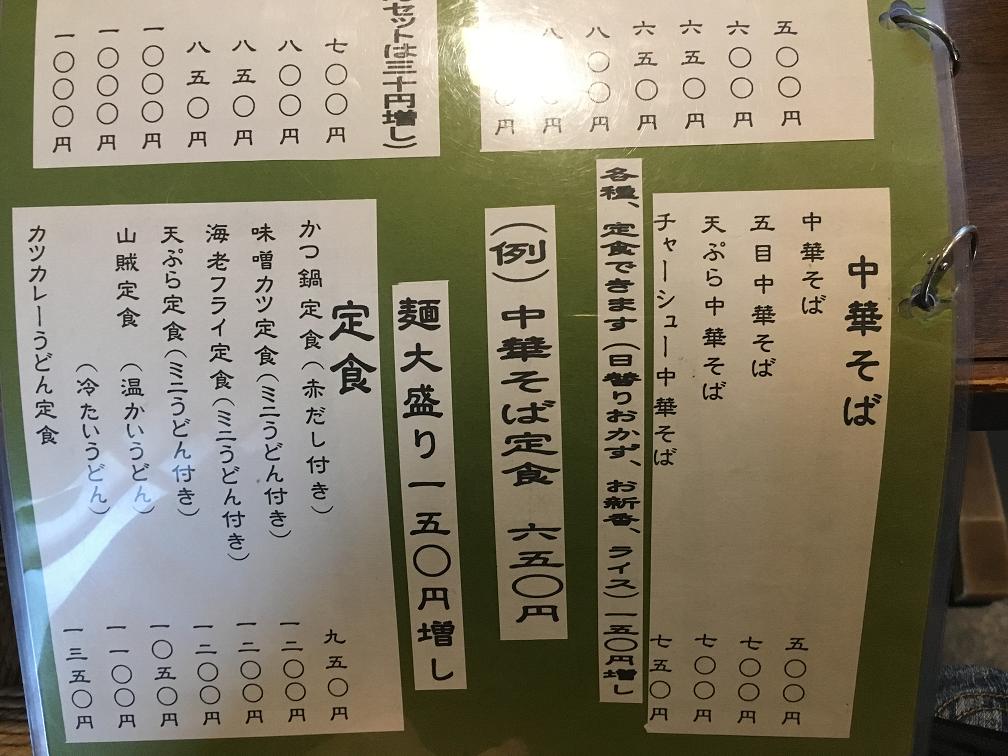 五〇〇円
六〇〇円
六五〇円
六五〇円
八〇〇円
円
円
セットは三十円増し）
七〇〇円
八〇〇円
八五〇円
八五〇円
一〇〇〇円
一〇〇〇円
一〇〇〇円
中華そば
中華そば 五〇〇円
五目中華そば 七〇〇円
天ぷら中華そば 七〇〇円
チャーシュー中華そば 七五〇円
各種、定食できます（日替りおかず、お新香、ライス）一五〇円増し
（例）中華そば定食 六五〇円
麺大盛り一五〇円増し
定食
かつ鍋定食（赤だし付き） 九五〇円
味噌カツ定食（ミニうどん付き） 一二〇〇円
海老フライ定食（ミニうどん付き） 一二〇〇円
天ぷら定食（ミニうどん付き） 一二〇〇円
山賊定食 （温かいうどん） 一〇五〇円
（冷たいうどん） 一一〇〇円
カツカレーうどん定食 一三五〇円